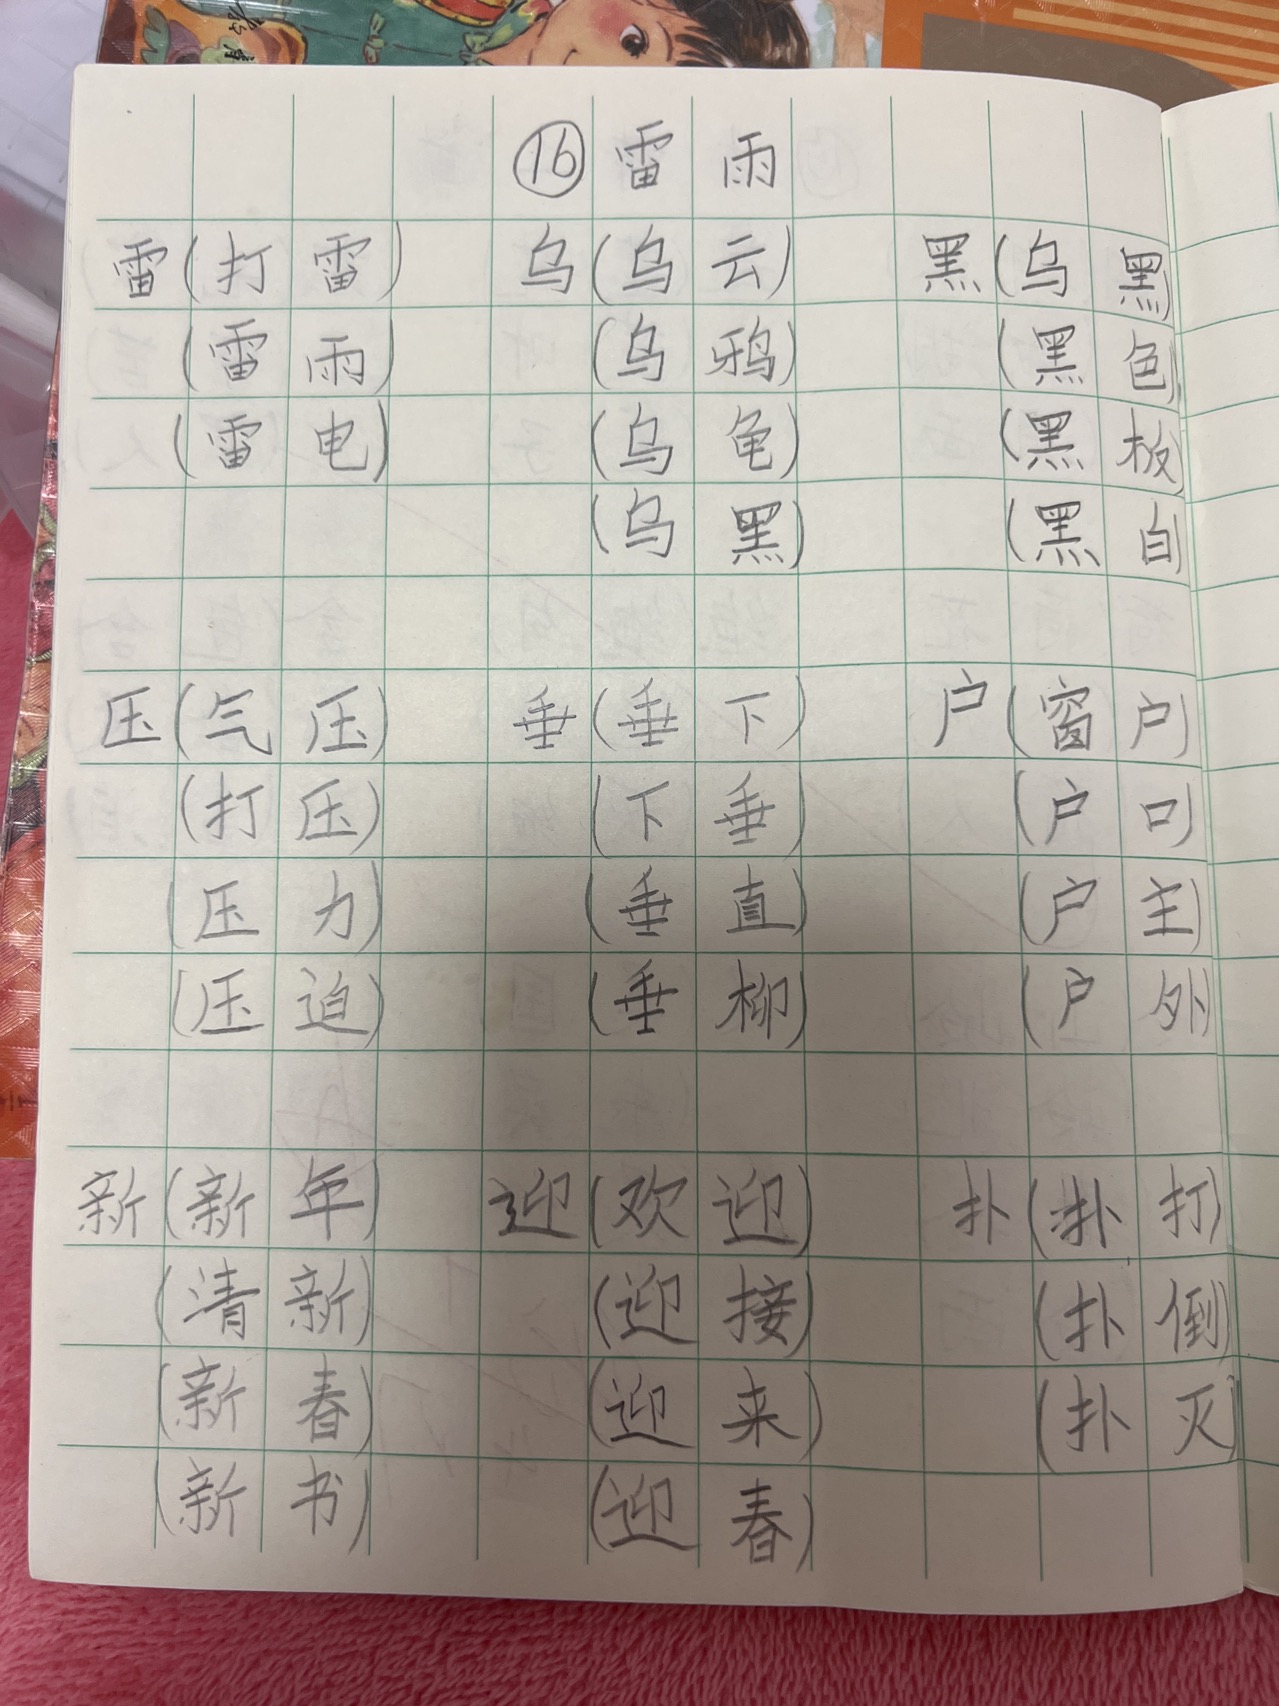 ⑯雷雨
雷(打雷) 乌(乌云) 黑(乌黑)
(雷雨) (乌鸦) (黑色)
(雷电) (乌龟) (黑板)
(乌黑) (黑白)
压(气压) 垂(垂下) 户(窗户)
(打压) (下垂) (户口)
(压力) (垂直) (户主)
(压迫) (垂柳) (户外)
新(新年) 迎(欢迎) 扑(扑打)
(清新) (迎接) (扑倒)
(新春) (迎来) (扑灭)
(新书) (迎春)